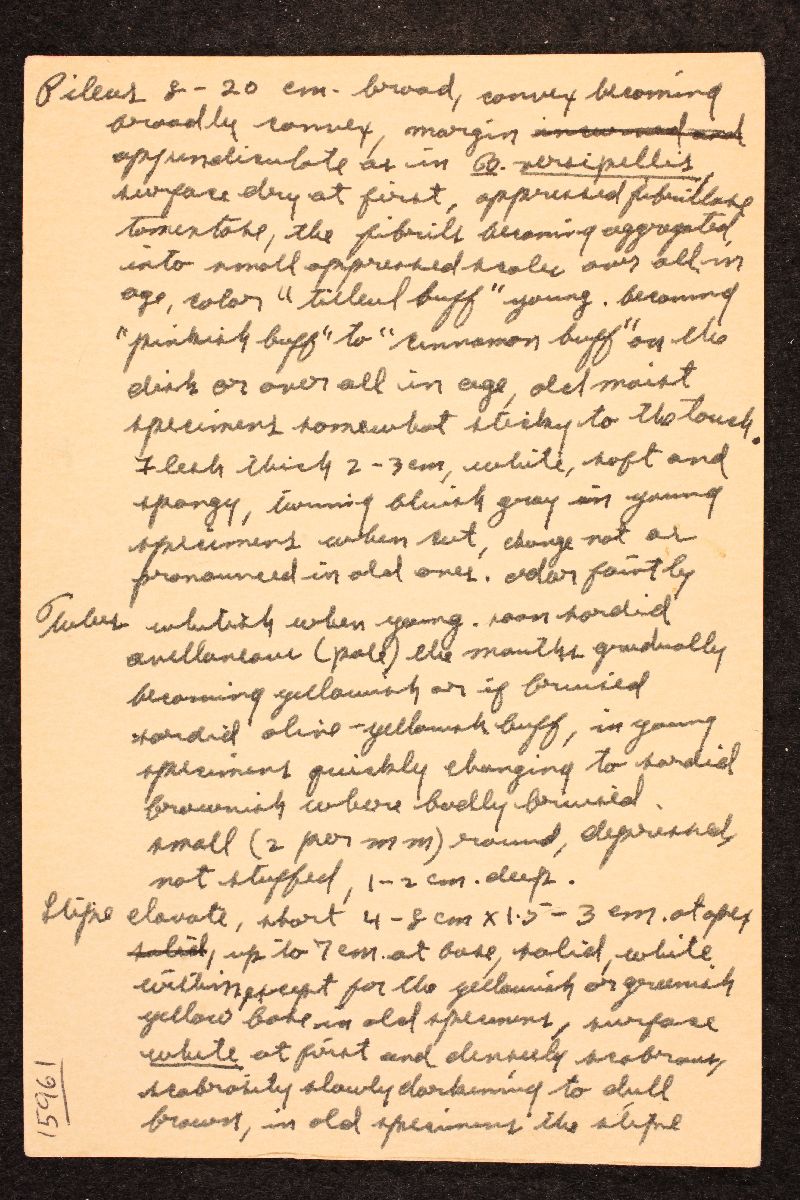 Pileus 8-20 cm. broad, convex becoming
broadly convex, margin incurved and
appendiculate as in B. versipellis,
surface dry at first, appressed fibrillose
tomentose, the fibrils becoming aggregated
into small appressed scales over all in
age, color "tilleul buff" young. becoming
"pinkish buff" to "cinnamon buff" on the
disk or over all in age, old moist
specimens somewhat sticky to the touch.
Flesh thick 2-3 cm, white, soft and
spongy, turning bluish gray in young
specimens when cut, change not as
pronounced in old ones. odor faintly
Tubes whitish when young. soon sordid
avellaneous (pale) the mouths gradually
becoming yellowish or if bruised
sordid olive-yellowish buff, in young
specimens quickly changing to sordid
brownish where badly bruised.
small (2 per mm) round, depressed,
not stuffed, 1-2 cm. deep.
Stipe clavate, short 4-8 cm x 1.5-3 cm. at apex
solid, up to 7 cm. at base, solid, white
within, except for the yellowish or greenish
yellow base in old specimens, surface
white at first and densely scabrous,
scabrosity slowly darkening to dull
brown, in old specimens the stipe
15961